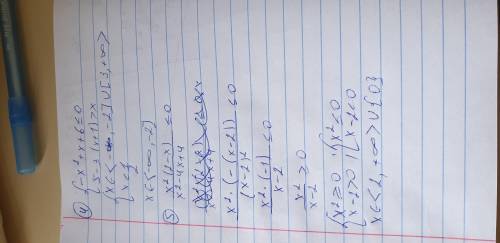 ④ { -x² + x + 6 ≤ 0
{ 5 - 3(x+1) > x
{ x ∈ (-∞, -2] ∪ [3, +∞>
{ x < 1/2
x ∈ <-∞, -2]
⑤ x²(2-x) / x²-4x+4 ≤ 0
x² · (-(x-2)) / (x-2)² ≤ 0
x² · (-1) / x-2 ≤ 0
x² / x-2 ≥ 0
{ x² ≥ 0 | { x² ≤ 0
{ x-2 > 0 | { x-2 < 0
x ∈ <2, +∞> ∪ {0}